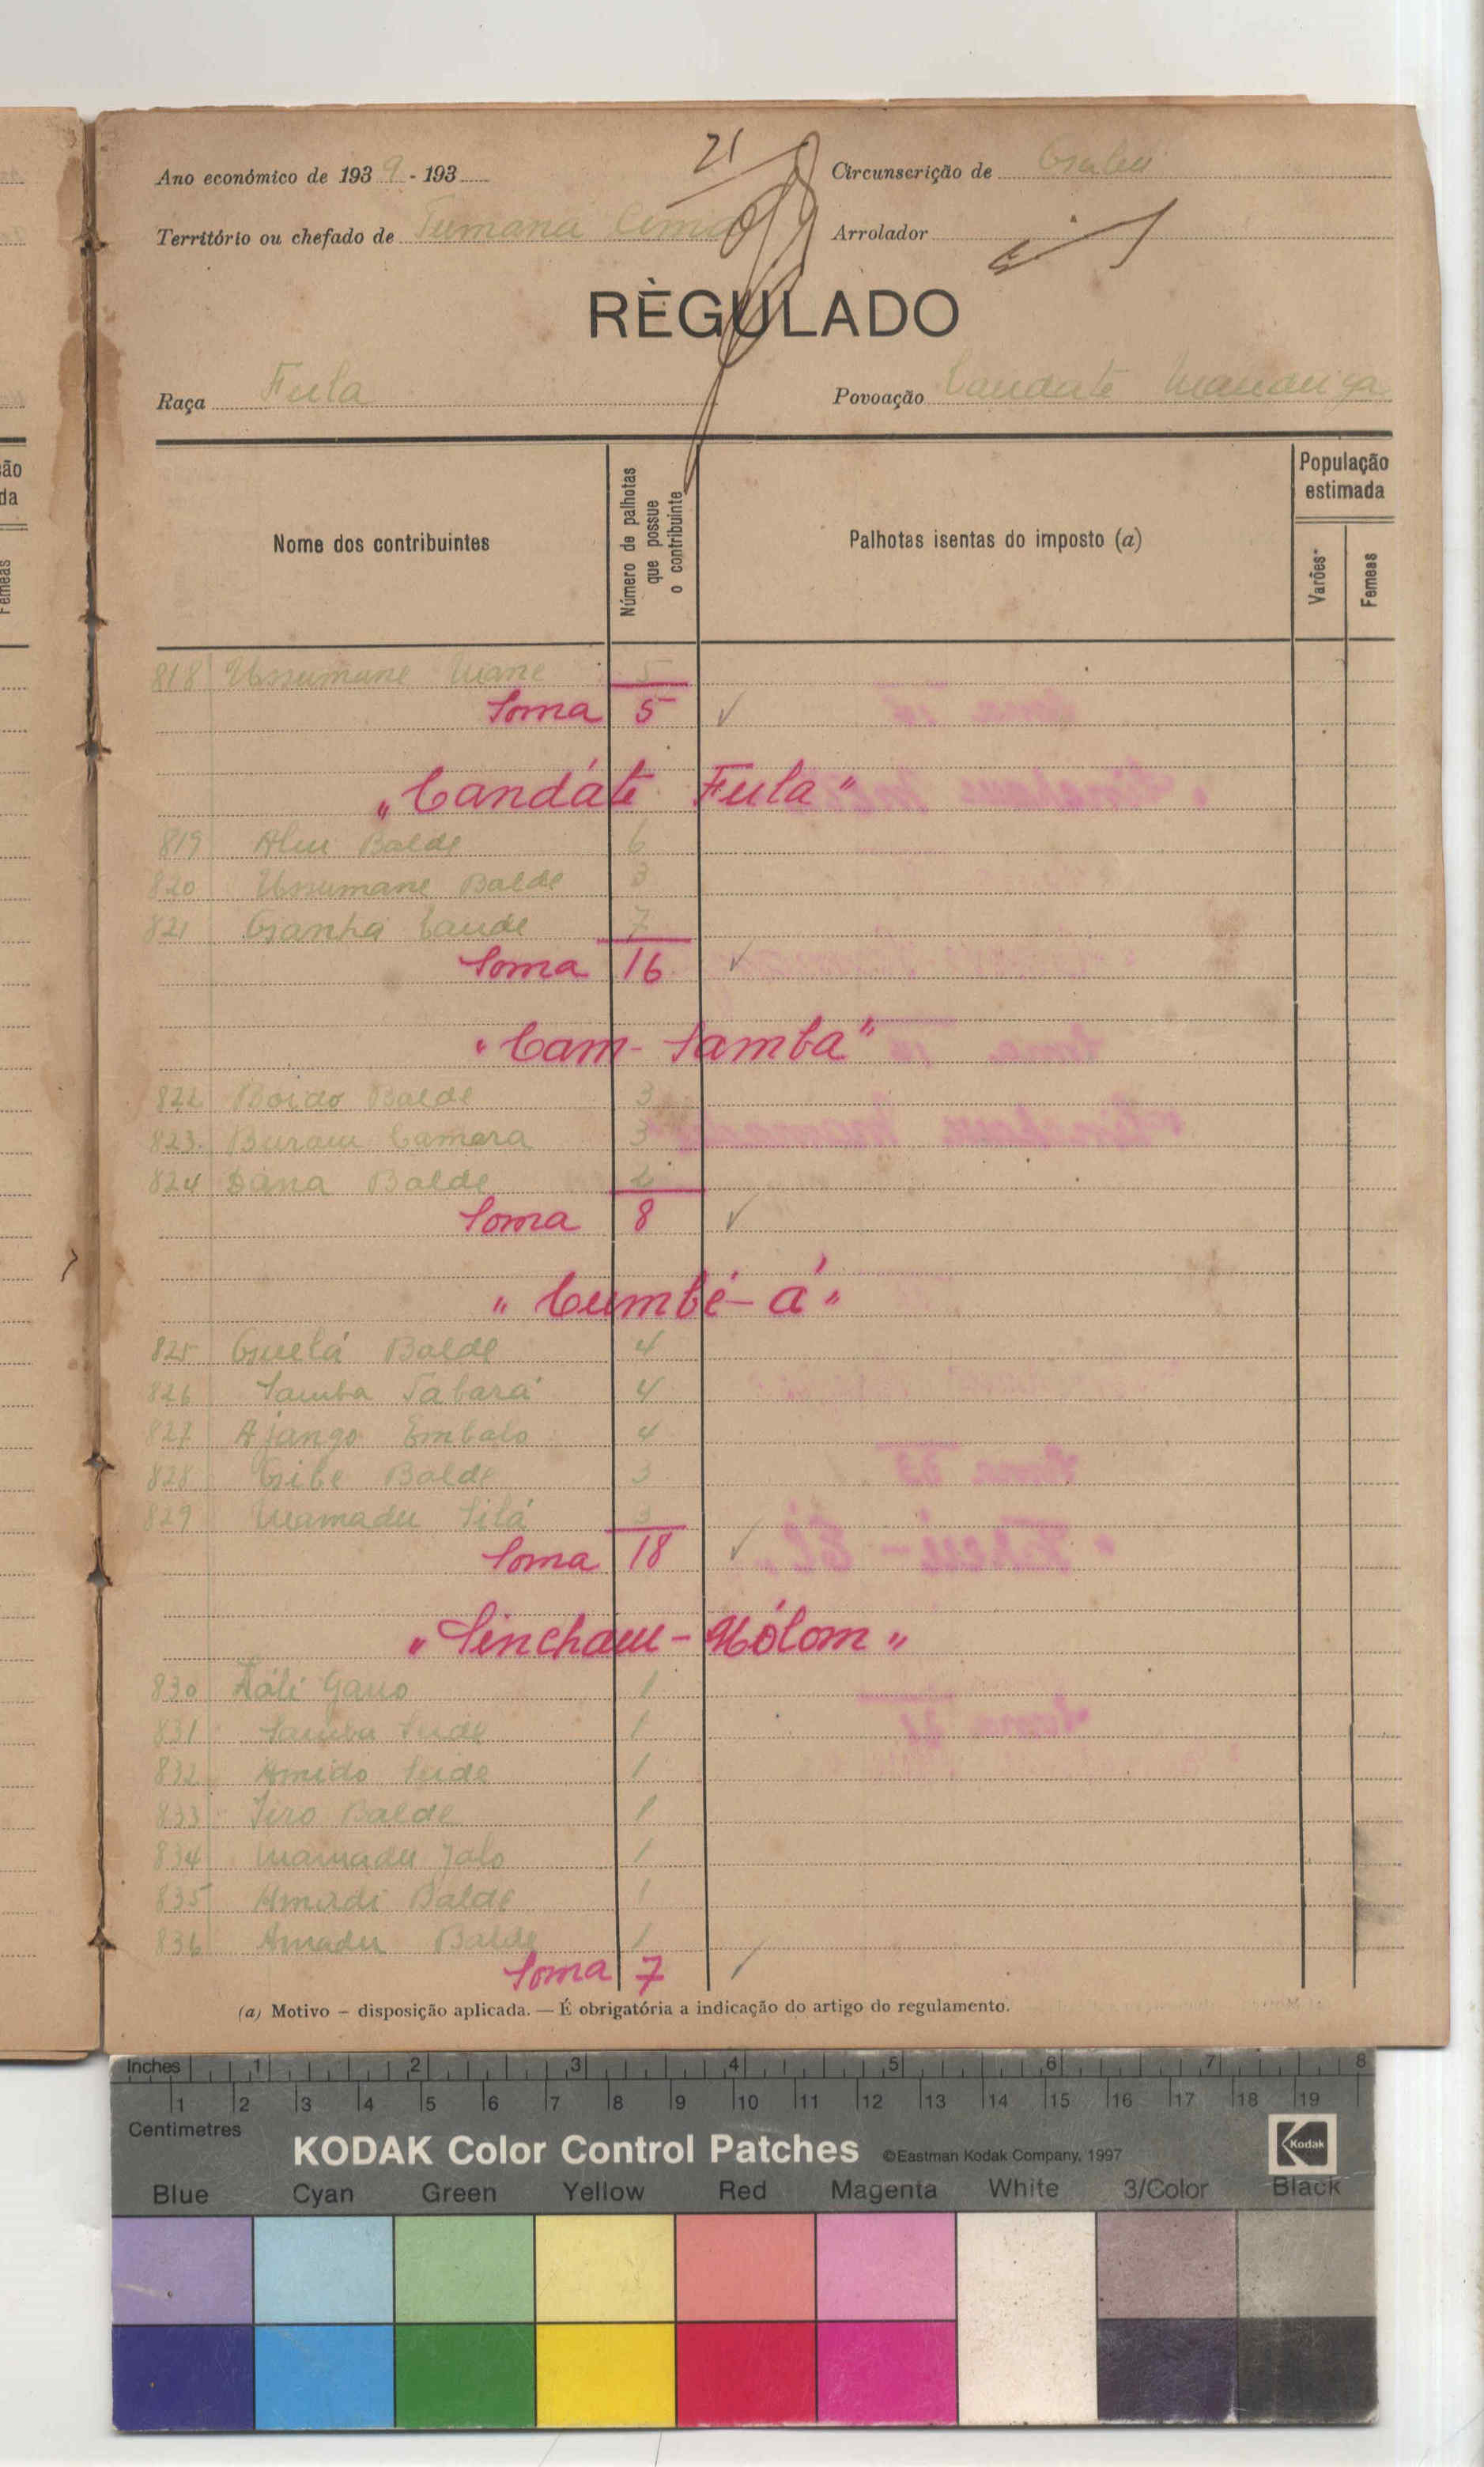 21
Ano económico de 1939 - 193
Circunscrição de Gabu
Território ou chefado de Tumana Cima
Arrolador
RÈGULADO
Raça Fula
Povoação Candate Mandinga
Nome dos contribuintes
Número de palhotas que possue o contribuinte
Palhotas isentas do imposto (a)
População estimada
Varões
Femeas
818 Ussumane Mane 5
Soma 5
"Candáte Fula"
819 Aliu Balde 6
820 Ussumane Balde 3
821 Ganha Caude 7
Soma 16
"Cam-Samba"
822 Boido Balde 3
823 Buraiu Camara 3
824 Dana Balde 2
Soma 8
"Cumbé-á"
825 Guelá Balde 4
826 Samba Tabará 4
827 Ajango Embalo 4
828 Gibe Balde 3
829 Mamadu Silá 3
Soma 18
"Sinchau-Hólom"
830 Dáli Gano 1
831 Samba Seide 1
832 Amido Seide 1
833 Iero Balde 1
834 Mamadu Jalo 1
835 Amadi Balde 1
836 Amadu Balde 1
Soma 7
(a) Motivo — disposição aplicada. — É obrigatória a indicação do artigo do regulamento.
Inches 1 2 3 4 5 6 7 8
1 2 3 4 5 6 7 8 9 10 11 12 13 14 15 16 17 18 19
Centimetres
KODAK Color Control Patches ©Eastman Kodak Company, 1997 Kodak
Blue Cyan Green Yellow Red Magenta White 3/Color Black